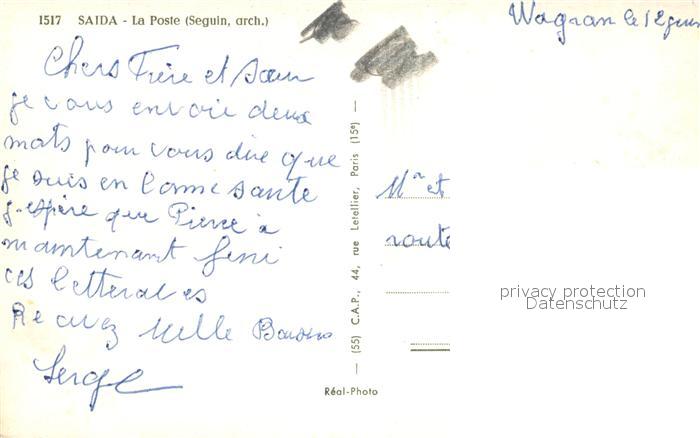 1517 SAIDA - La Poste (Seguin, arch.)
Wagran le 12 juin
Chers Frère et Sœur
je vous envoie deux
mots pour vous dire que
je suis en bonne santé
j'espère que Pierre à
maintenant fini
ces
Recevez Mille Baisers
Serge
(55) C.A.P., 44, rue Letellier, Paris (15e)
Mr et
route
privacy protection
Datenschutz
Réal-Photo